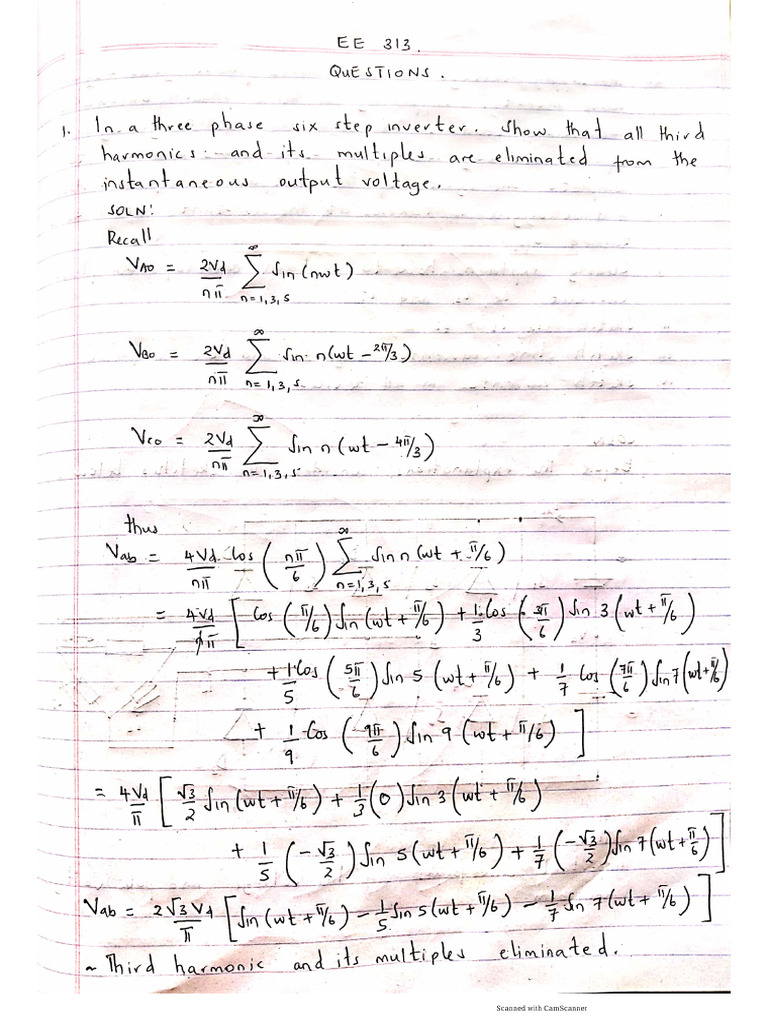 EE 313.
QUESTIONS.
1. In a three phase six step inverter. Show that all third
harmonics and its multiples are eliminated from the
instantaneous output voltage.
SOLN:
Recall
V_AO = 2Vd/nπ ∑_{n=1,3,5}^{∞} Sin(nωt)
V_BO = 2Vd/nπ ∑_{n=1,3,5}^{∞} Sin n(ωt - 2π/3)
V_CO = 2Vd/nπ ∑_{n=1,3,5}^{∞} Sin n(ωt - 4π/3)
thus
Vab = 4Vd/nπ Cos(nπ/6) ∑_{n=1,3,5}^{∞} Sin n(ωt + π/6)
= 4Vd/π [Cos(π/6) Sin(ωt + π/6) + 1/3 Cos(3π/6) Sin 3(ωt + π/6)
+ 1/5 Cos(5π/6) Sin 5(ωt + π/6) + 1/7 Cos(7π/6) Sin 7(ωt + π/6)
+ 1/9 Cos(9π/6) Sin 9(ωt + π/6)]
= 4Vd/π [√3/2 Sin(ωt + π/6) + 1/3(0) Sin 3(ωt + π/6)
+ 1/5(-√3/2) Sin 5(ωt + π/6) + 1/7(-√3/2) Sin 7(ωt + π/6)]
Vab = 2√3Vd/π [Sin(ωt + π/6) - 1/5 Sin 5(ωt + π/6) - 1/7 Sin 7(ωt + π/6)]
~ Third harmonic and its multiples eliminated.
Scanned with CamScanner